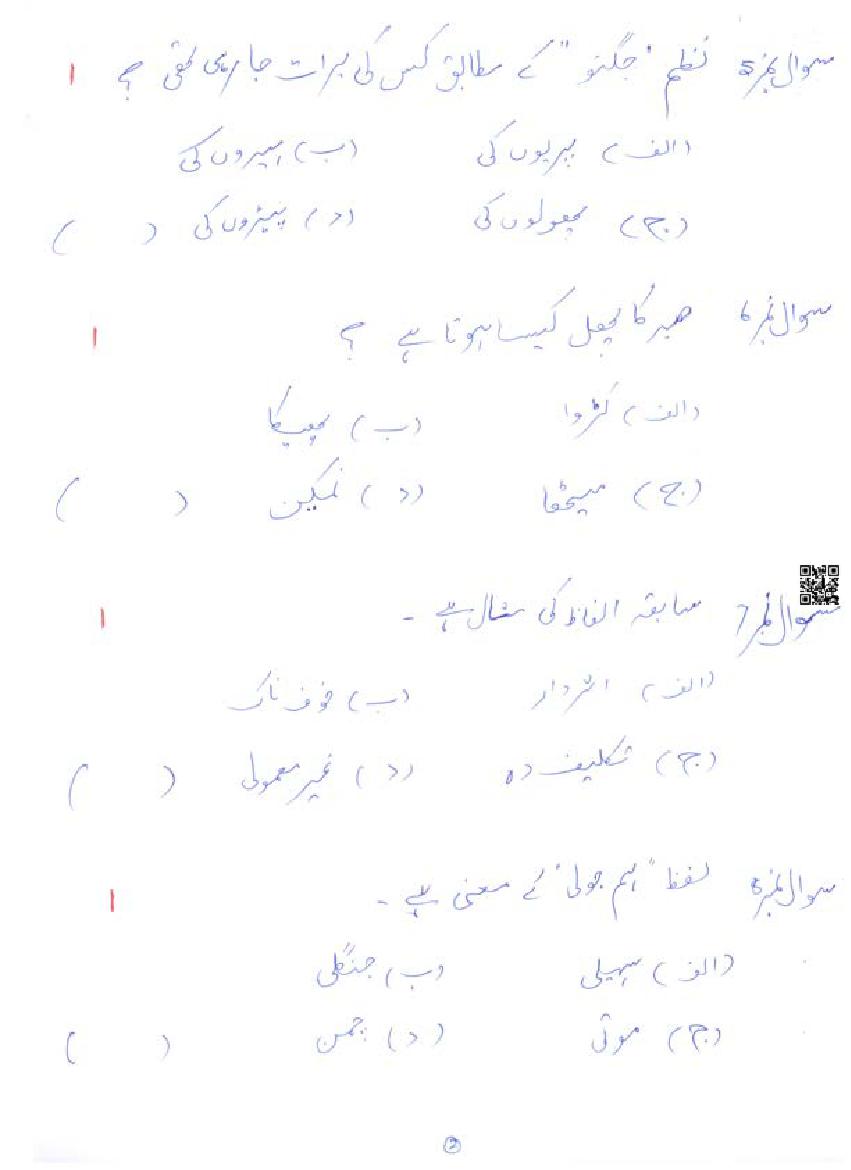 سوال نمبر 5 نظم "جگنو" کے مطابق کس کی برات جارہی تھی ؟ 1
(الف) پریوں کی (ب) ہیروں کی
(ج) پھولوں کی (د) پیڑوں کی ( )
سوال نمبر 6 صبر کا پھل کیسا ہوتا ہے ؟ 1
(الف) کڑوا (ب) پھیکا
(ج) میٹھا (د) نمکین ( )
سوال نمبر 7 سابقہ الفاظ کی مثال ہے ۔ 1
(الف) اثردار (ب) خوف ناک
(ج) تکلیف دہ (د) غیر معمولی ( )
سوال نمبر 8 لفظ "ہم جولی" کے معنی ہے ۔ 1
(الف) سہیلی (ب) جنگلی
(ج) موتی (د) چمن ( )
2